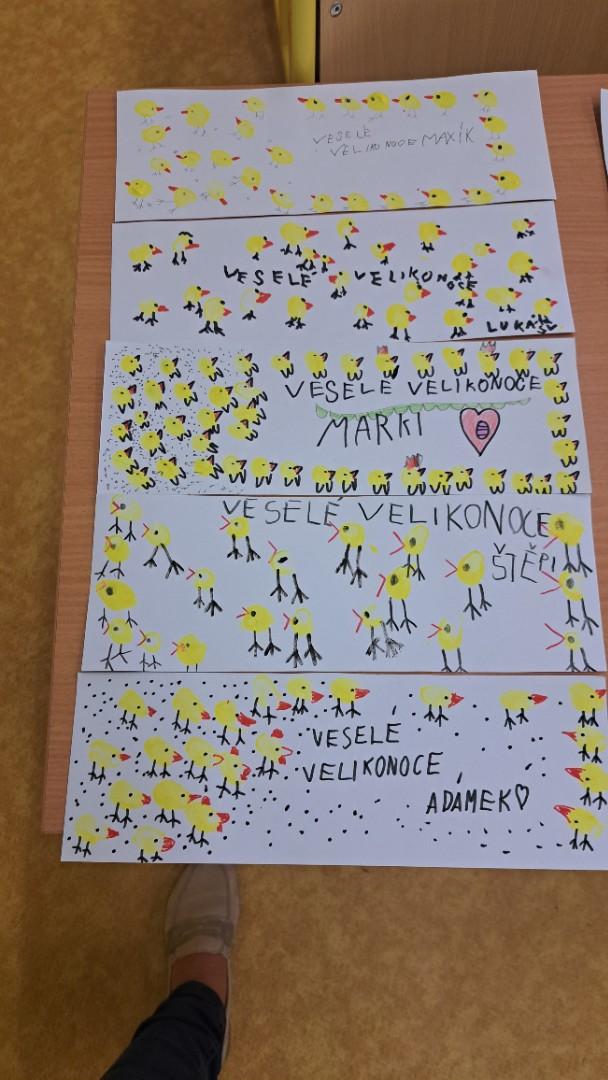 VESELÉ
VELIKONOCE MAXÍK
VESELÉ VELIKONOCE
VESELÉ VELIKONOCE
MARKI
VESELÉ VELIKONOCE
ŠTĚPI
VESELÉ
VELIKONOCE
ADÁMEK♡